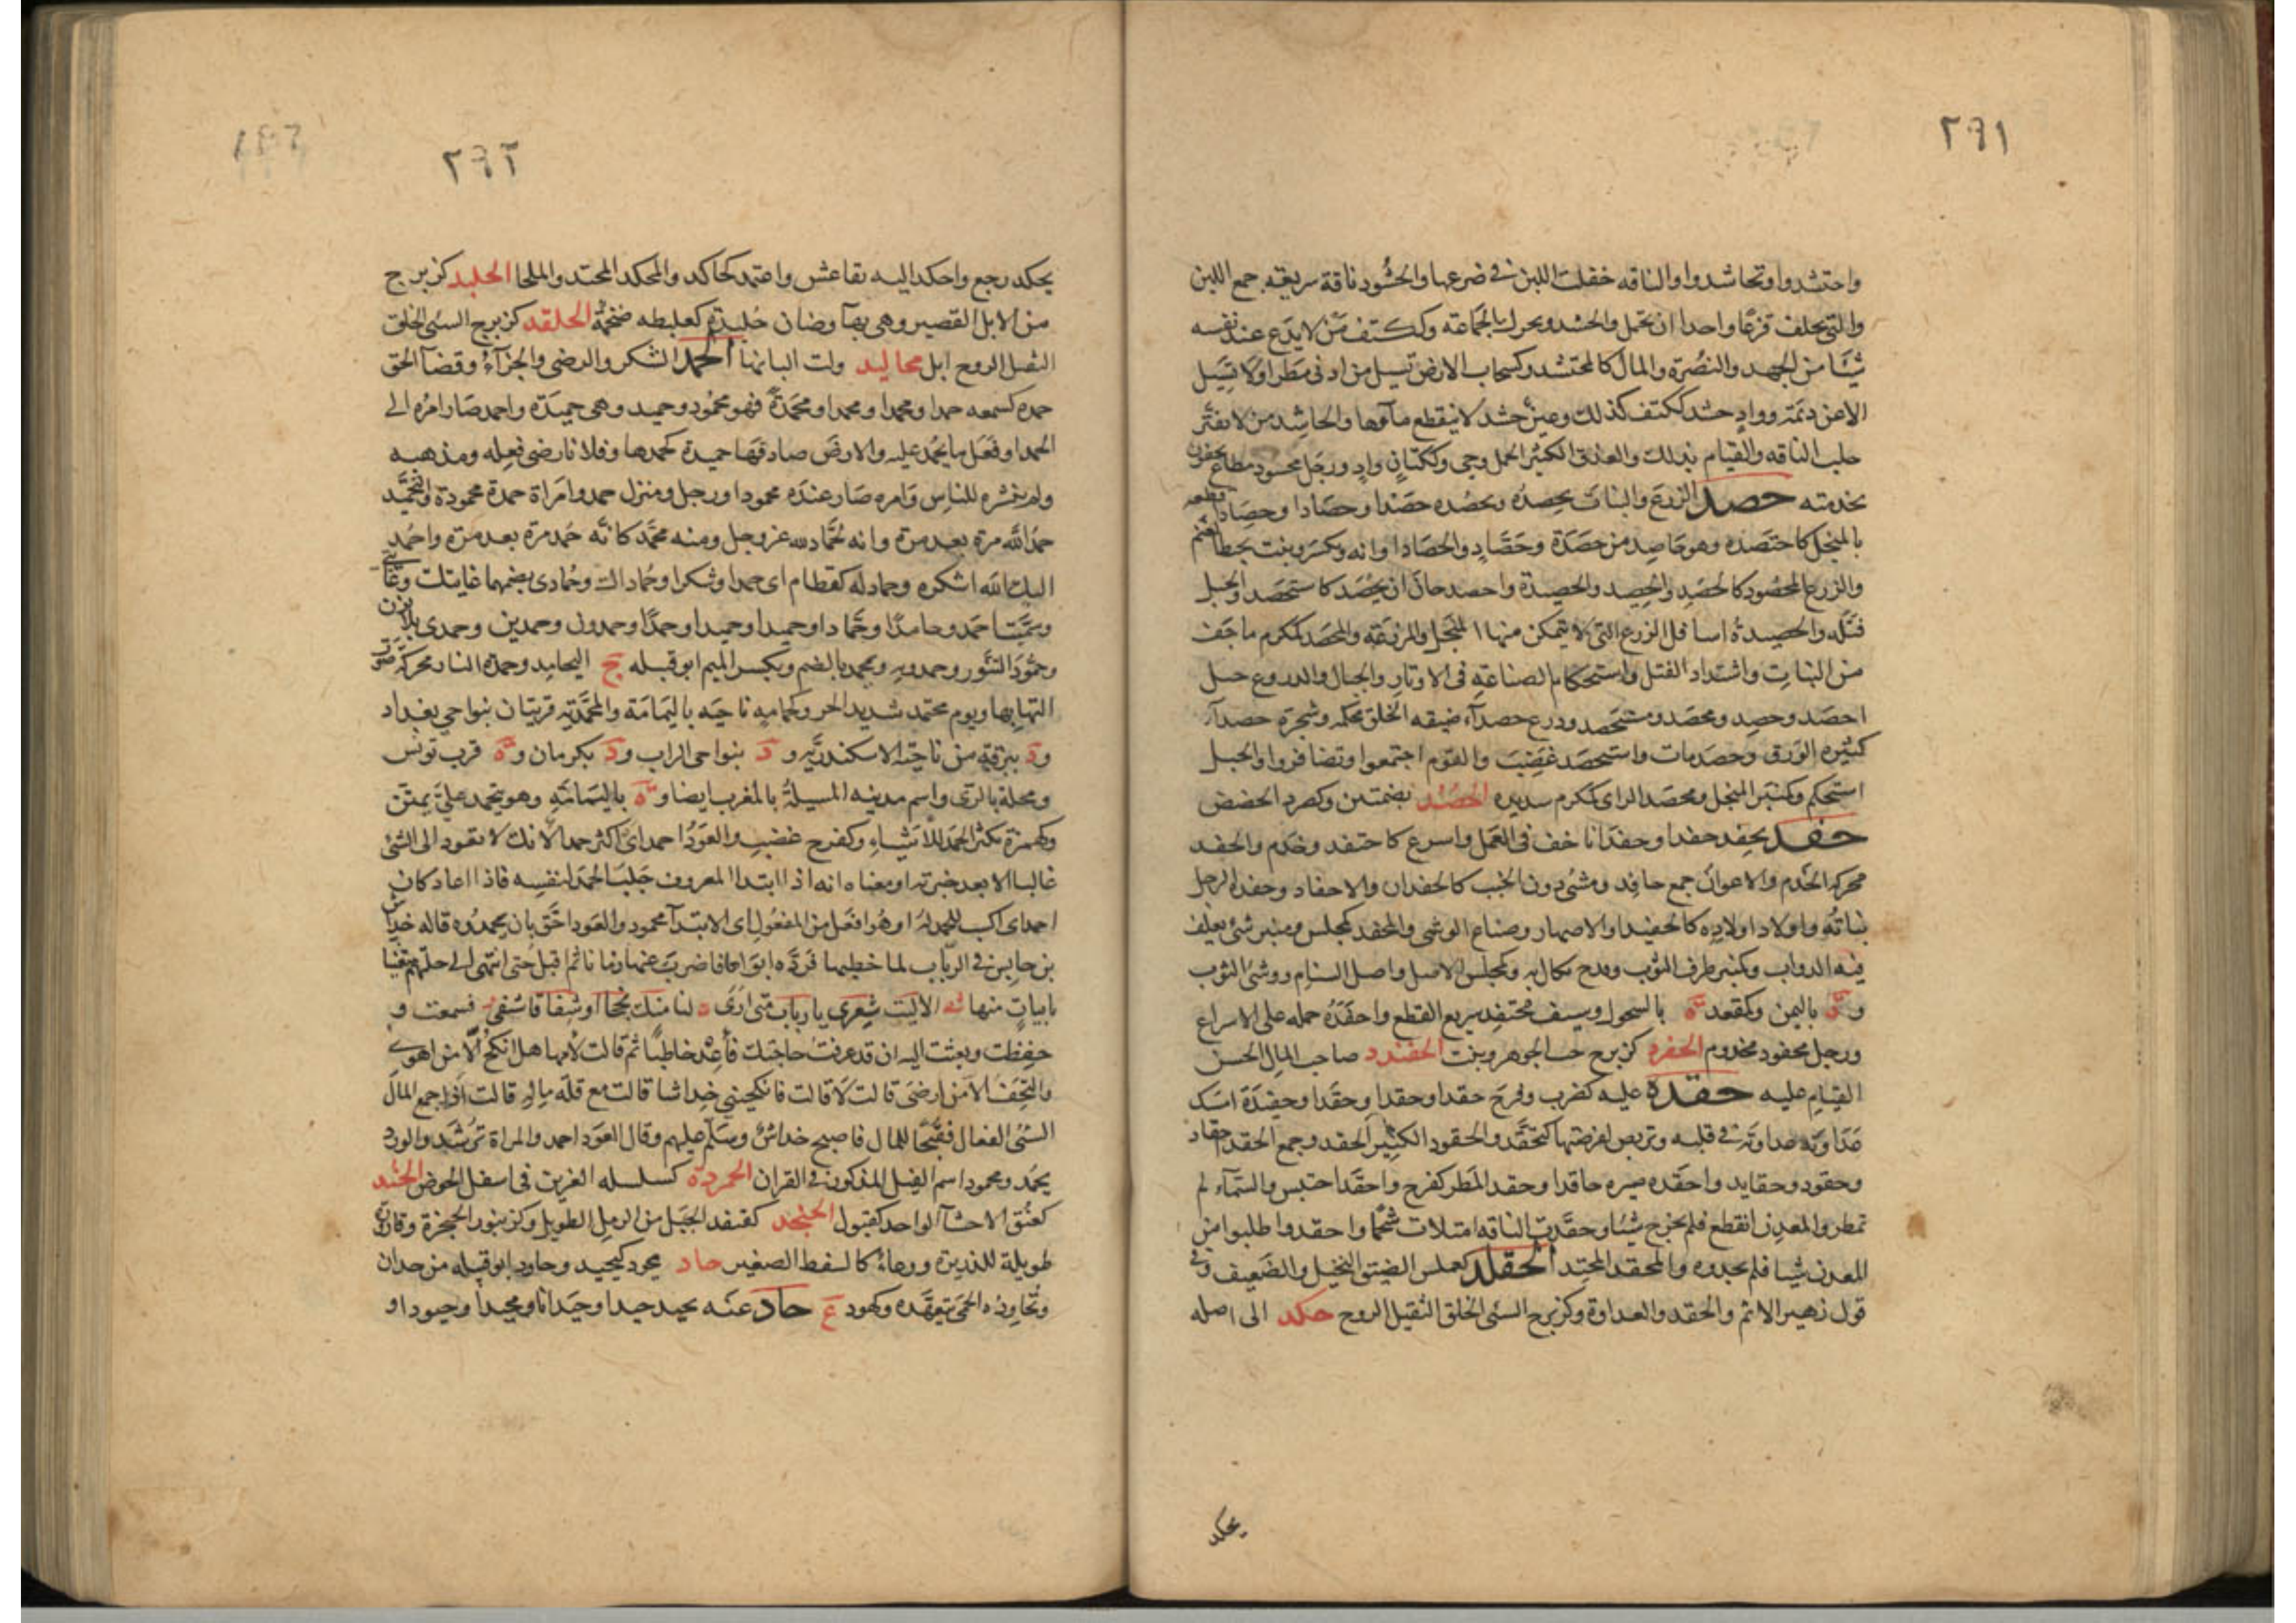 ٢٩١
واحتشدوا وتحاشدوا والناقه حفلت اللبن فى ضرعها والحشود ناقة سريعة جمع اللبن
والتى تخلف قرعا واحدا ان تحمل والحشد ويحرك الجماعة وككتف من لا يدع عند نفسه
شيا من الجهد والنصرة والمال كالمحتشد وكسحاب الارض تسيل من ادنى مطر او لا تسيل
الا عن ديمة وواد حشد ككتف كذلك وعين حشد لا ينقطع ماوها والحاشد من لا يفتر
حلب الناقه والقيام بذلك والعذق الكثير الحمل وحى وككتان واد ورجل محشود مطاع يخفون
بخدمته حصد الزرع والنبات يحصده ويحصده حصدا وحصادا وحصادا قطعه
بالمنجل كاحتصده وهو حاصد من حصدة وحصاد والحصاد اوانه ويكسر ونبت يخبط الغنم
والزرع المحصود كالحصد والحصيد والحصيدة واحصد حان ان يحصد كاستحصد والحبل
فتله والحصيدة اسافل الزرع التى لا يتمكن منها المنجل والمزرعة والمحصد كمكرم ما جف
من النبات واشتداد الفتل واستحكام الصناعة فى الاوتار والحبال والدروع حبل
احصد وحصد ومحصد ومستحصد ودرع حصدآء ضيقه الحلق محكمه وشجرة حصدآء
كثيره الورق وحصد مات واستحصد غضب والقوم اجتمعوا وتضافروا والحبل
استحكم وكمنبر المنجل ومحصد الراى كمكرم سديده الحضد بضمتين وكصرد الحضض
حفد يحفد حفدا وحفدانا خف فى العمل واسرع كاحتفد وخدم والحفد
محركه الخدم والاعوان جمع حافد ومشى دون الخبب كالحفدان والاحفاد وحفدة الرجل
بناته او اولاد اولاده كالحفيد او الاصهار وصناع الوشى والمحفد كمجلس ومنبر شئ يعلف
فيه الدواب وكمنبر طرف الثوب وقدح يكال به وكمجلس الاصل واصل السنام ووشى الثوب
و ة باليمن وكمقعد ة بالسحول وسيف محتفد سريع القطع واحفده حمله على الاسراع
ورجل محفود مخدوم الحفرد كزبرج حب الجوهر ونبت الحفندد صاحب المال الحسن
القيام عليه حقد عليه كضرب وفرح حقدا وحقدا وحقدا وحقيدة امسك
عداوته فى قلبه وتربص لفرصتها كتحقد والحقود الكثير الحقد وجمع الحقد احقاد
وحقود وحقايد واحقده صيره حاقدا وحقد المطر كفرح واحقد احتبس والسمآء لم
تمطر والمعدن انقطع فلم يخرج شيا وحقدت الناقه امتلات شحما واحقدوا طلبوا من
المعدن شيا فلم يجدوه والمحقد المحتد الحقلد كعملس الضيق البخيل والضعيف وفى
قول زهير الاثم والحقد والعداوة وكزبرج السئى الخلق الثقيل الروح حكد الى اصله
يحكد
٢٩٢
يحكد رجع واحكد اليه تقاعس واعتمد كحاكد والمحكد المحتد والملجا الحلبد كزبرج
من الابل القصير وهى بهآ وضان حلبدة كعلبطه ضخمة الحلقد كزبرج السئى الخلق
الثقيل الروح ابل محاليد ولت البانها الحمد الشكر والرضى والجزآء وقضآ الحق
حمده كسمعه حمدا ومحمدا ومحمدا ومحمدة فهو محمود وحميد وهى حميدة واحمد صار امره الى
الحمد او فعل ما يحمد عليه والارض صادفها حميدة كحمدها وفلانا رضى فعله ومذهبه
ولم ينشره للناس وامره صار عنده محمودا ورجل ومنزل حمد وامراة حمدة محمودة والتحميد
حمد الله مرة بعد مرة وانه لحماد لله عز وجل ومنه محمد كانه حمد مرة بعد مرة واحمد
اليك الله اشكره وحماد له كقطام اى حمدا وشكرا وحماداك وحمادى بضمهما غايتك وغايتى
وسمت احمد وحامدا وحمادا وحميدا وحميدا وحمدا وحمدون وحمدين وحمدى
وحمود كتنور وحمدويه ويحمد بالضم وبكسر الميم ابو قبيله ج اليحامد وحمدة النار محركة صوت
التهابها ويوم محتمد شديد الحر وكحمامه ناحيه باليمامة والمحمدية قريتان بنواحى بغداد
و د ببرقة من ناحية الاسكندرية و د بنواحى الزاب و د بكرمان و ة قرب تونس
ومحلة بالرى واسم مدينه المسيلة بالمغرب ايضا و ة باليمامة وهو يتحمد على يمتن
وكهمزة مكثر الحمد للاشياء وكفرح غضب والعود احمد اى اكثر حمدا لانك لا تعود الى الشئ
غالبا الا بعد خبرته او معناه انه اذا ابتدا المعروف جلب الحمد لنفسه فاذا اعاد كان
احمد اى اكسب للحمد له او هو افعل من المفعول اى الابتدآ محمود والعود احق بان يحمدوه قاله خداش
بن حابس فى الرباب لما خطبها فرده ابواها فاضرب عنها زمانا ثم اقبل حتى انتهى الى حلتهم متغنيا
بابيات منها الا ليت شعرى يا رباب متى ارى لنا منك نجحا او شفآ فاشتفى فسمعت و
حفظت وبعثت اليه ان قد عرفت حاجتك فاغد خاطبا ثم قالت لامها هل انكح الا من اهوى
والتحف الا من ارضى قالت لا قالت فانكحينى خداشا قالت مع قلة ماله قالت اذا جمع المال
السئى الفعال فقبحا للمال فاصبح خداش وسلم عليهم وقال العود احمد والمراة ترشد والورد
يحمد ومحمود اسم الفيل المذكور فى القران الحمردة كسلسله الغرين فى اسفل الحوض الحند
كعنق الاحسآ الواحد كقبول الحنجد كقنفد الحبل من الرمل الطويل وكزنبور الحنجرة وقارورة
طويلة للذريرة ووعاء كالسفط الصغير حاد يحود كيحيد وحاود ابو قبيله من حدان
وتحاوده الحمى تتعهده وكهود ع حاد عنه يحيد حيدا وحيدانا ومحيدا وحيودا و